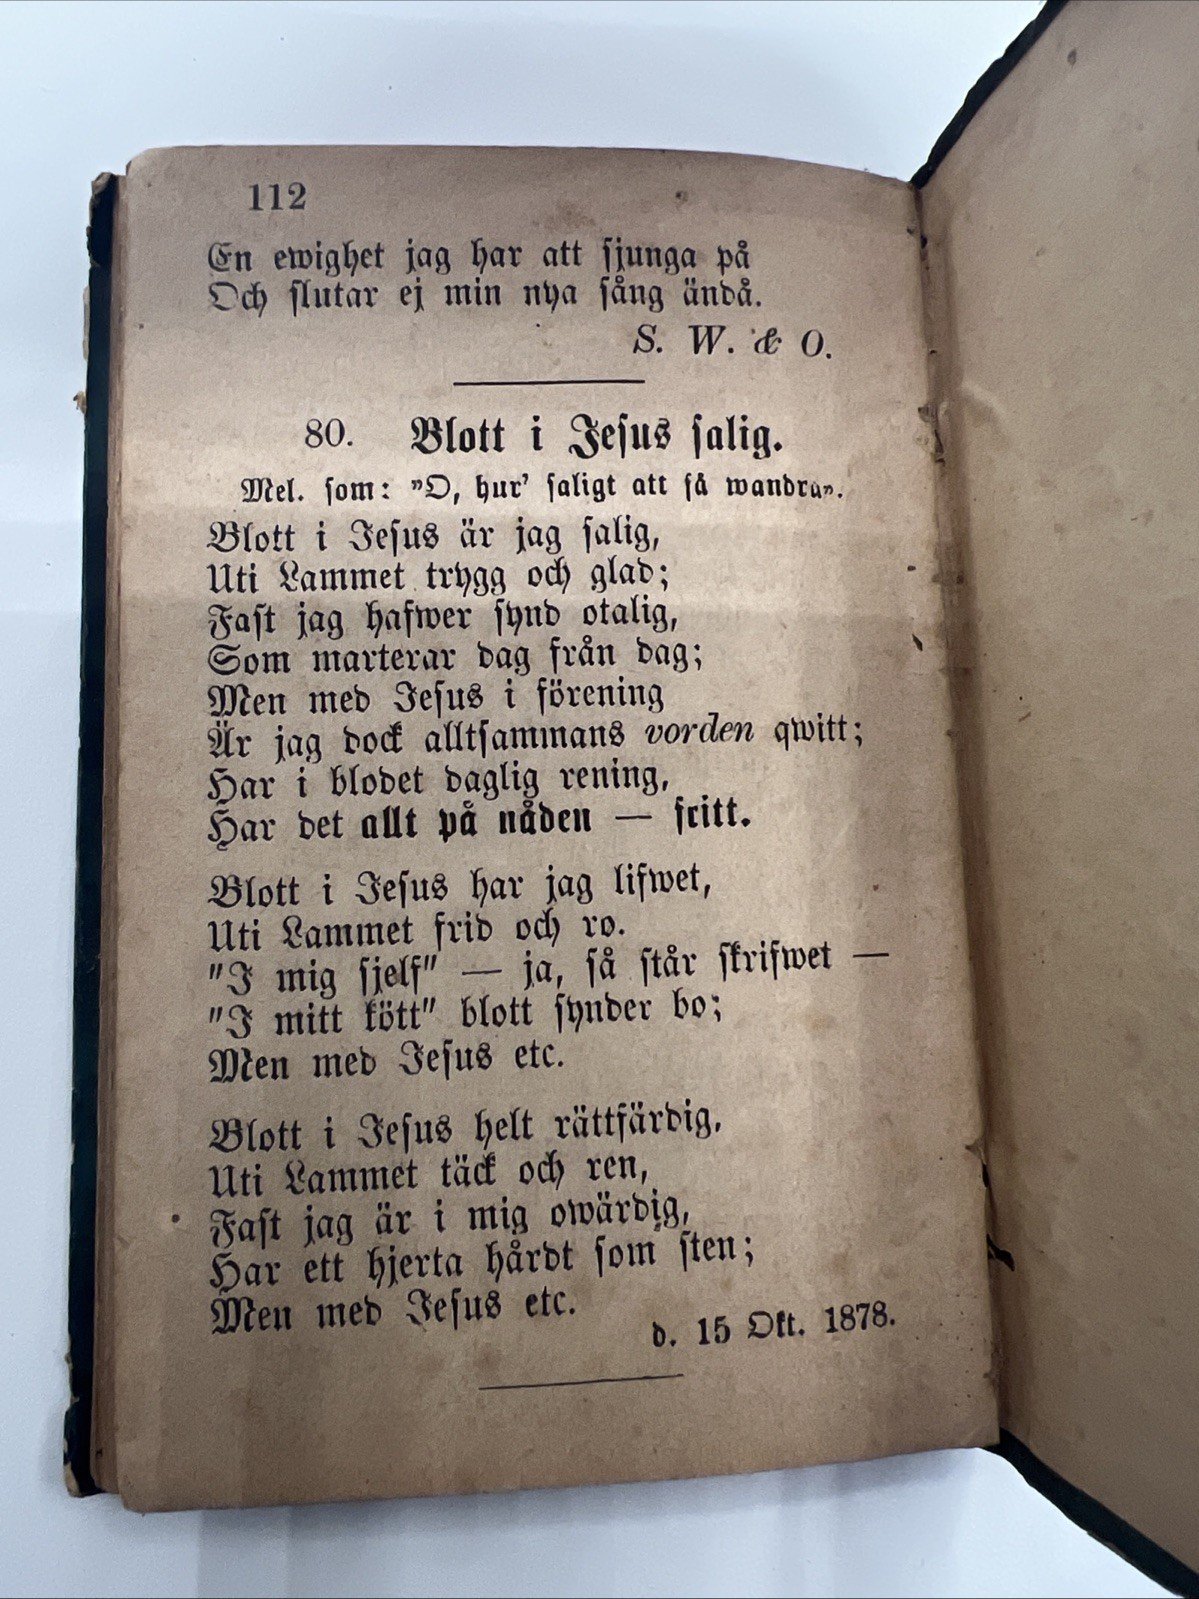 112
En ewighet jag har att sjunga på
Och slutar ej min nya sång ändå.
S. W. & O.
80. Blott i Jesus salig.
Mel. som: "O, hur' saligt att få wandra".
Blott i Jesus är jag salig,
Uti Lammet trygg och glad;
Fast jag hafwer synd otalig,
Som marterar dag från dag;
Men med Jesus i förening
Är jag dock alltsammans vorden qwitt;
Har i blodet daglig rening,
Har det allt på nåden — fritt.
Blott i Jesus har jag lifwet,
Uti Lammet frid och ro.
"I mig sjelf" — ja, så står skrifwet —
"I mitt kött" blott synder bo;
Men med Jesus etc.
Blott i Jesus helt rättfärdig,
Uti Lammet täck och ren,
Fast jag är i mig owärdig,
Har ett hjerta hårdt som sten;
Men med Jesus etc.
d. 15 Okt. 1878.